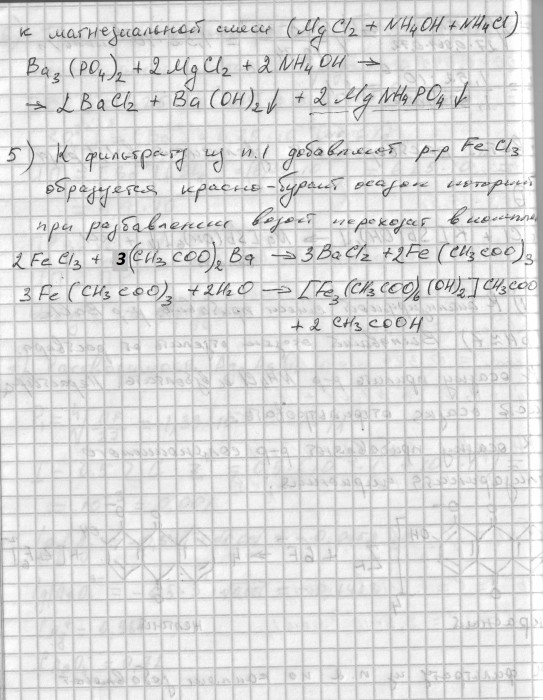 к магнезиальной смеси (MgCl2 + NH4OH + NH4Cl)
Ba3(PO4)2 + 2MgCl2 + 2NH4OH →
→ 2BaCl2 + Ba(OH)2↓ + 2MgNH4PO4↓
5) К фильтрату из п.1 добавляют р-р FeCl3
образуется красно-бурый осадок который
при разбавлении водой переходит в компл
2FeCl3 + 3(CH3COO)2Ba → 3BaCl2 + 2Fe(CH3COO)3
3Fe(CH3COO)3 + 2H2O → [Fe3(CH3COO)6(OH)2]CH3COO
+ 2CH3COOH